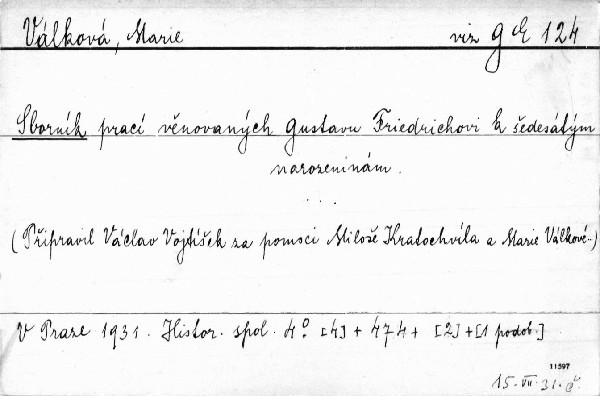 Válková, Marie viz g E 124
Sborník prací věnovaných Gustavu Friedrichovi k šedesátým
narozeninám.
. . .
(Připravil Václav Vojtíšek za pomoci Miloše Kratochvíla a Marie Válkové.)
V Praze 1931. Histor. spol. 4° [4] + 474 + [2] + [1 podob.]
11597
15. VII. 31. č.